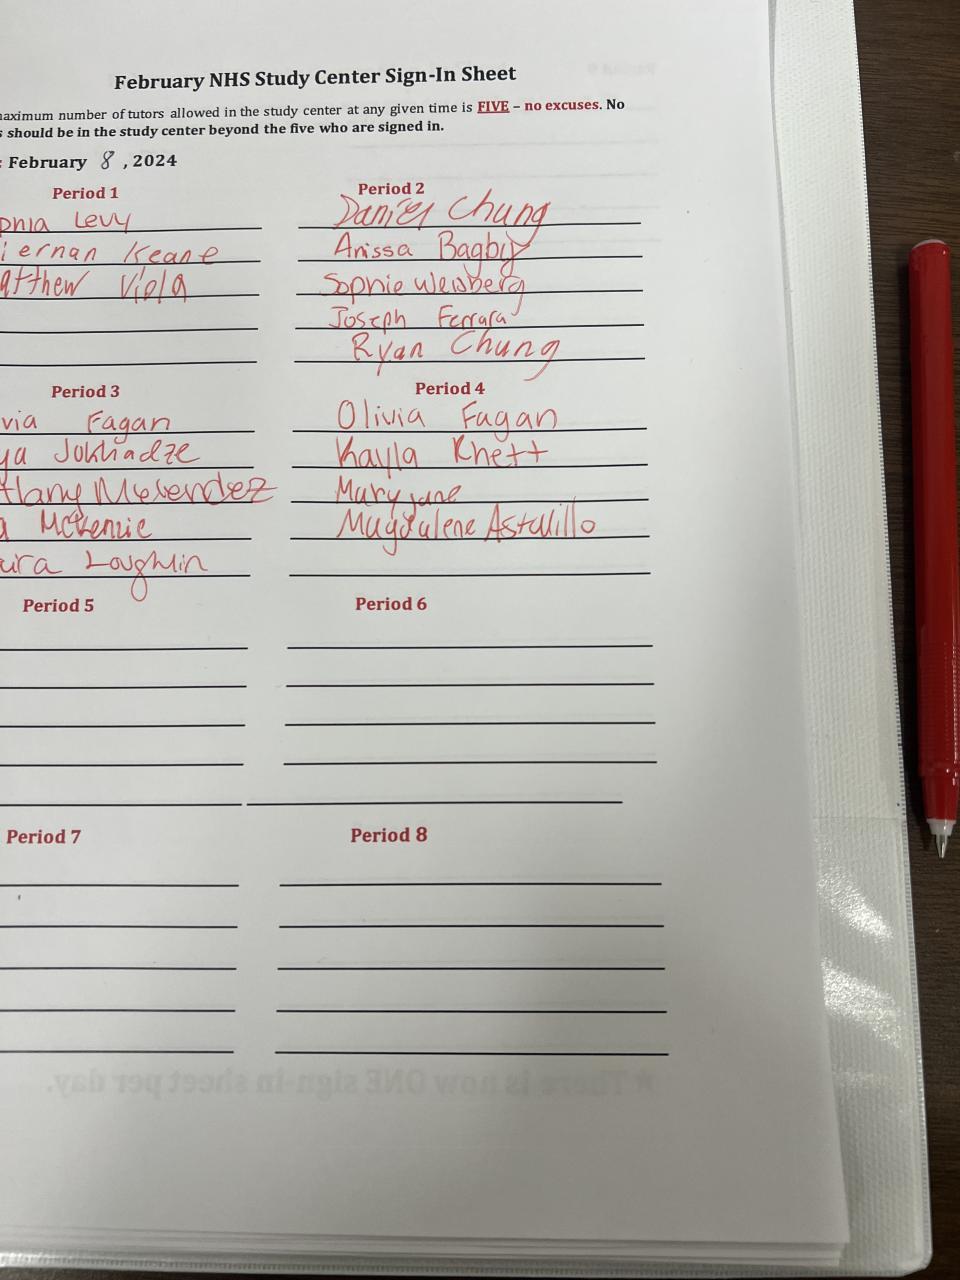 February NHS Study Center Sign-In Sheet
aximum number of tutors allowed in the study center at any given time is FIVE – no excuses. No
s should be in the study center beyond the five who are signed in.
: February 8, 2024
Period 1
Period 2
phia Levy
Daniel Chung
iernan Keane
Anissa Bagby
atthew Viola
Sophie Weisberg
Joseph Ferrara
Ryan Chung
Period 3
Period 4
via Fagan
Olivia Fagan
ya Jokhadze
Kayla Rhett
Mary Jane
a McKenzie
ura Loughlin
Period 5
Period 6
Period 7
Period 8
★ There is now ONE sign-in sheet per day.